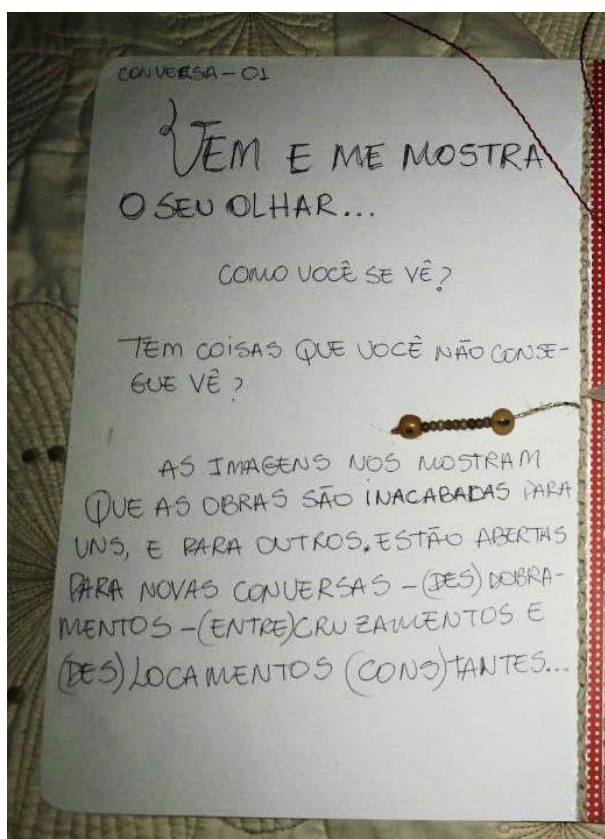 CONVERSA - 01
VEM E ME MOSTRA
O SEU OLHAR...
COMO VOCÊ SE VÊ?
TEM COISAS QUE VOCÊ NÃO CONSE-
GUE VÊ?
AS IMAGENS NOS MOSTRAM
QUE AS OBRAS SÃO INACABADAS PARA
UNS, E PARA OUTROS. ESTÃO ABERTAS
PARA NOVAS CONVERSAS - (DES)DOBRA-
MENTOS - (ENTRE)CRUZAMENTOS E
(DES)LOCAMENTOS (CONS)TANTES...